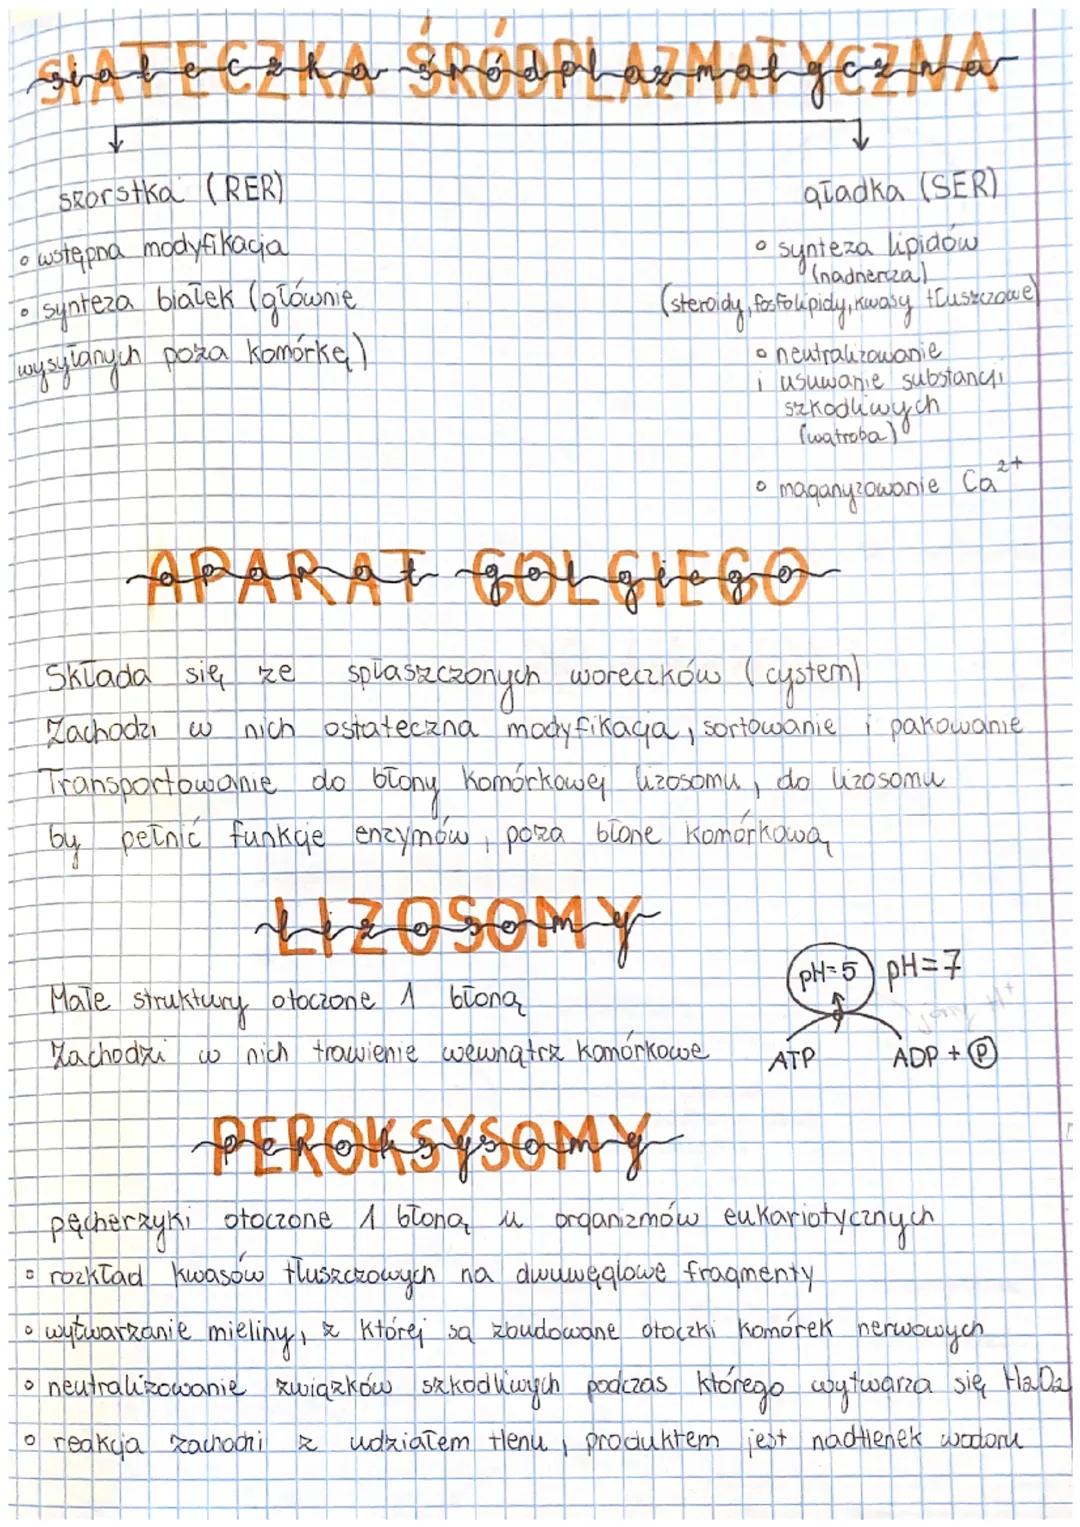 SIATECZKA ŚRÓDPLAZMATYCZNA
szorstka (RER)
• wstępna modyfikacja
• synteza białek (głównie
wysyłanych poza komórkę)
gładka (SER)
• synteza lipidów
(nadnercza)
(steroidy, fosfolipidy, kwasy tłuszczowe)
• neutralizowanie
i usuwanie substancji
szkodliwych
(wątroba)
• maganyzowanie Ca²⁺
APARAT GOLGIEGO
Składa się ze spłaszczonych woreczków (cystern)
Zachodzi w nich ostateczna modyfikacja, sortowanie i pakowanie
Transportowanie do błony komórkowej lizosomu, do lizosomu
by pełnić funkcje enzymów, poza błone komórkową
LIZOSOMY
Małe struktury otoczone 1 błoną
Zachodzi w nich trawienie wewnątrz komórkowe
pH=5 pH=7
jony H⁺
ATP ADP + P
PEROKSYSOMY
pęcherzyki otoczone 1 błoną u organizmów eukariotycznych
• rozkład kwasów tłuszczowych na dwuwęglowe fragmenty
• wytwarzanie mieliny, z której są zbudowane otoczki komórek nerwowych
• neutralizowanie związków szkodliwych podczas którego wytwarza się H₂O₂
• reakcja zachodzi z udziałem tlenu, produktem jest nadtlenek wodoru